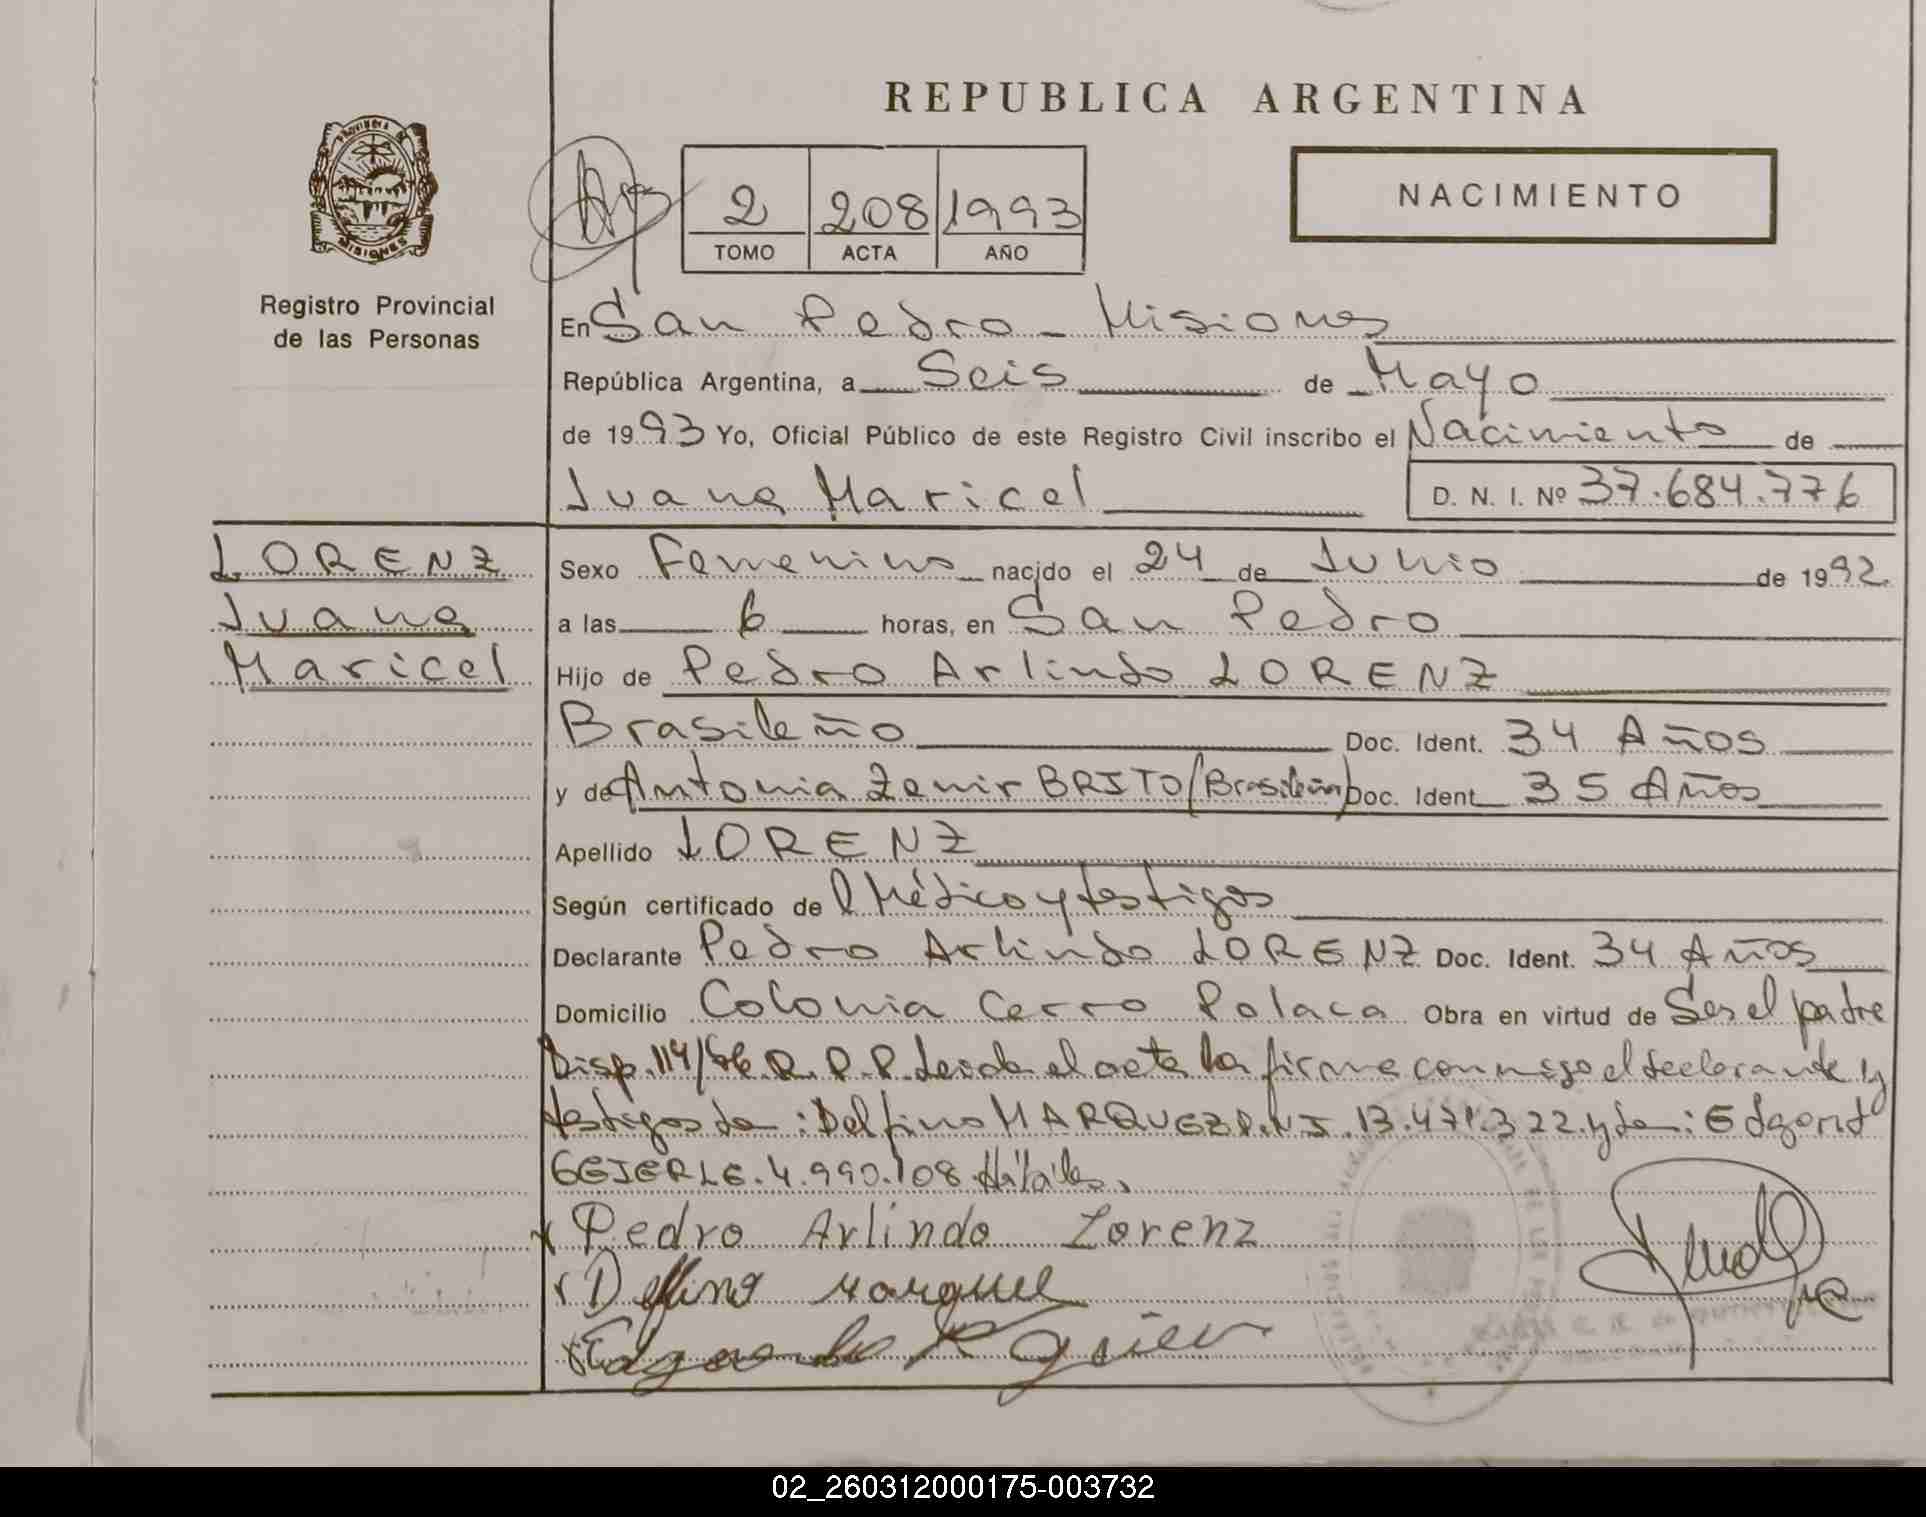 REPUBLICA ARGENTINA
PROVINCIA DE MISIONES
Registro Provincial
de las Personas
2 208 1993
TOMO ACTA AÑO
NACIMIENTO
En San Pedro - Misiones
República Argentina, a Seis de Mayo
de 1993 Yo, Oficial Público de este Registro Civil inscribo el Nacimiento de
Juana Maricel D. N. I. Nº 37.684.776
LORENZ
Juana
Maricel
Sexo Femenino nacido el 24 de Junio de 1992.
a las 6 horas, en San Pedro
Hijo de Pedro Arlindo LORENZ
Brasileño Doc. Ident. 34 Años
y de Antonia Zenir BRITO (Brasileña) Doc. Ident 35 Años
Apellido LORENZ
Según certificado de Médico y testigos
Declarante Pedro Arlindo LORENZ Doc. Ident. 34 Años
Domicilio Colonia Cerro Polaca Obra en virtud de Ser el padre
Disp. 114/86 R. P. P. Leida el acta la firma conmigo el declarante y
testigos de: Delfino MARQUEZ D.N.I. 13.471.322 y de: Edgard
GEIER L.E. 4.990.108 Hábiles.
x Pedro Arlindo Lorenz
x Delfino Marquez
02_260312000175-003732